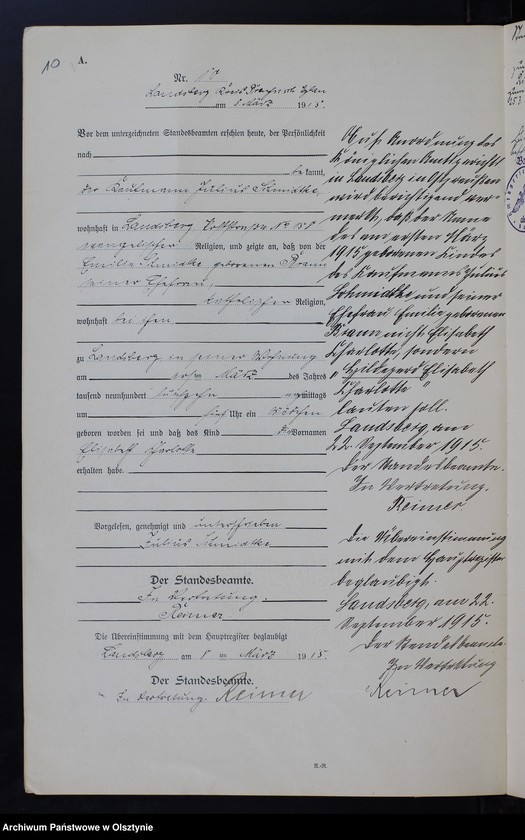 10
A.
Nr. 10
Landsberg Kreis Preußisch Eylau
am 8. März 1915.
Vor dem unterzeichneten Standesbeamten erschien heute, der Persönlichkeit
nach
be kannt,
der Kaufmann Julius Schmidtke,
wohnhaft in Landsberg
evangelischer Religion, und zeigte an, daß von der
Emilie Schmidtke geborenen Braun
seiner Ehefrau,
katholischer Religion,
wohnhaft bei ihm
zu Landsberg in seiner Wohnung
am ersten März des Jahres
tausend neunhundert fünfzehn mittags
um fünf Uhr ein Mädchen
geboren worden sei und daß das Kind die Vornamen
Elisabeth Charlotte
erhalten habe.
Vorgelesen, genehmigt und unterschrieben
Julius Schmidtke
Der Standesbeamte.
In Vertretung.
Reimer
Die Übereinstimmung mit dem Hauptregister beglaubigt
Landsberg am 8 ten März 1915.
Der Standesbeamte.
In Vertretung. Reimer
Auf Anordnung des
Königlichen Amtsgerichts
in Landsberg in Ostpreußen
wird berichtigend ver-
merkt, daß der Name
des am ersten März
1915 geborenen Kindes
des Kaufmanns Julius
Schmidtke und seiner
Ehefrau Emilie geborenen
Braun nicht Elisabeth
Charlotte, sondern
"Hildegard Elisabeth
Charlotte"
lauten soll.
Landsberg, am
22. September 1915.
Der Standesbeamte.
In Vertretung.
Reimer
Die Übereinstimmung
mit dem Hauptregister
beglaubigt.
Landsberg, am 22.
September 1915.
Der Standesbeamte.
In Vertretung
Reimer
Archiwum Państwowe w Olsztynie